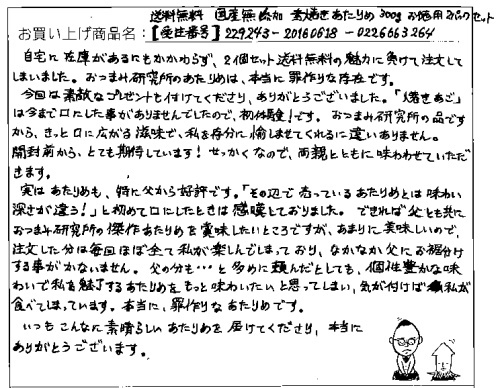 送料無料 国産無添加 素焼きあたりめ 300g お徳用 2パックセット
お買い上げ商品名：【受注番号】229243-20160618-0226663264
自宅に在庫があるにもかかわらず、2個セット送料無料の魅力に負けて注文して
しまいました。おつまみ研究所のあたりめは、本当に罪作りな存在です。
今回は素敵なプレゼントも付けてくださり、ありがとうございました。「焼きあご」
は今まで口にした事がありませんでしたので、初体験！です。おつまみ研究所の品です
から、きっと口に広がる滋味で、私を存分に愉しませてくれるに違いありません。
開封前から、とても期待しています！せっかくなので、両親とともに味わわせていただ
きます。
実はあたりめも、特に父から好評です。「その辺で売っているあたりめとは味わい
深さが違う！」と初めて口にしたときは感嘆しておりました。できれば父と共に
おつまみ研究所の傑作あたりめを賞味したいところですが、あまりに美味しいので、
注文した分は毎回ほぼ全て私が楽しんでしまっており、なかなか父にお裾分け
する事がかないません。父の分も…と多めに頼んだとしても、個性豊かな味
わいで私を魅了するあたりめを、もっと味わいたいと思ってしまい、気が付けば私が
食べてしまっています。本当に、罪作りなあたりめです。
いつもこんなに素晴らしいあたりめを届けてくださり、本当に
ありがとうございます。